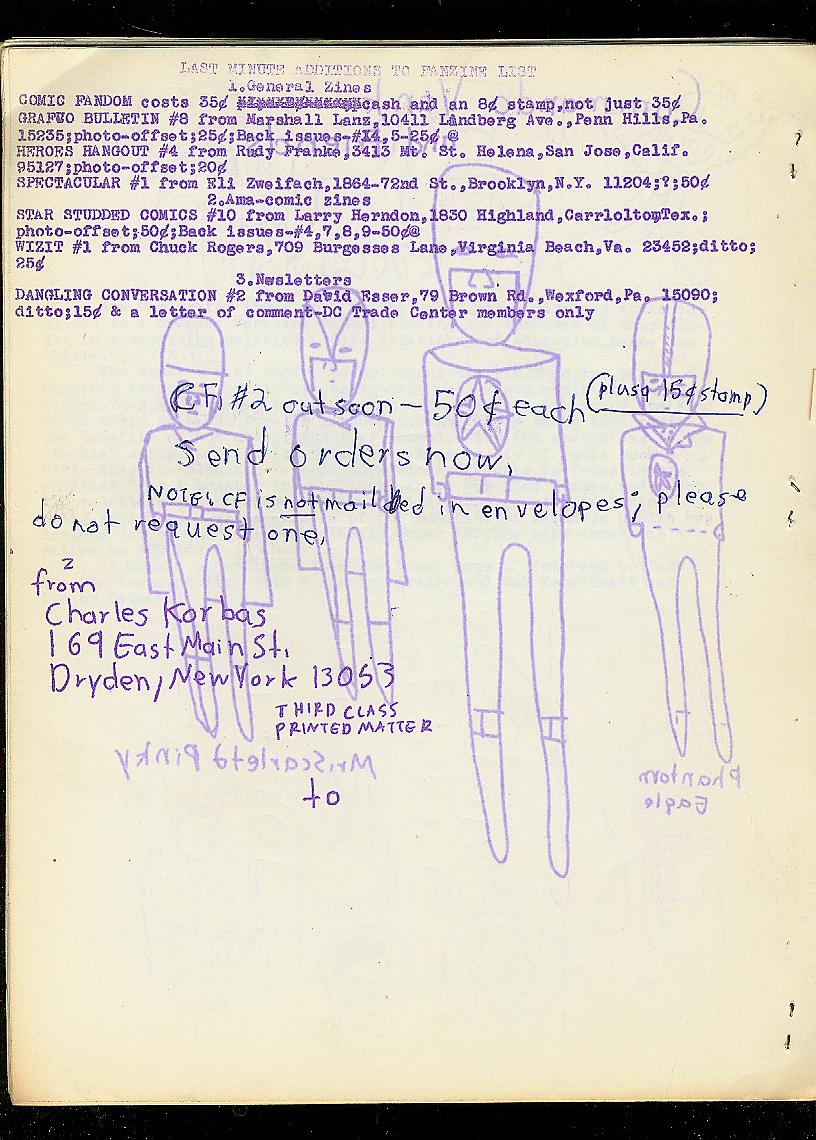 LAST MINUTE ADDITIONS TO FANZINE LIST
1.General Zines
COMIC FANDOM costs 35¢ cash and an 8¢ stamp,not just 35¢
GRAFWO BULLETIN #8 from Marshall Lanz,10411 Lándberg Ave.,Penn Hills,Pa.
15235;photo-offset;25¢;Back issues-#14,5-25¢.@
HEROES HANGOUT #4 from Rudy Franke,3413 Mt. St. Helena,San Jose,Calif.
95127;photo-offset;20¢
SPECTACULAR #1 from Eli Zweifach,1864-72nd St.,Brooklyn,N.Y. 11204;?;50¢
2.Ama-comic zines
STAR STUDDED COMICS #10 from Larry Herndon,1830 Highland,Carrlolton,Tex.;
photo-offset;50¢;Back issues-#4,7,8,9-50¢@
WIZIT #1 from Chuck Rogers,709 Burgesses Lane,Virginia Beach,Va. 23452;ditto;
25¢
3.Newsletters
DANGLING CONVERSATION #2 from David Esser,79 Brown Rd.,Wexford,Pa. 15090;
ditto;15¢ & a letter of comment-DC Trade Center members only
CF #2 out soon - 50¢ each (plus a 15¢ stamp)
Send orders now.
NOTE: CF is not mailed in envelopes; please
do not request one.
from
Charles Korbas
169 East Main St.
Dryden, New York 13053
THIRD CLASS
PRINTED MATTER
Mr. Scarlet & Pinky
to
Phantom
Eagle